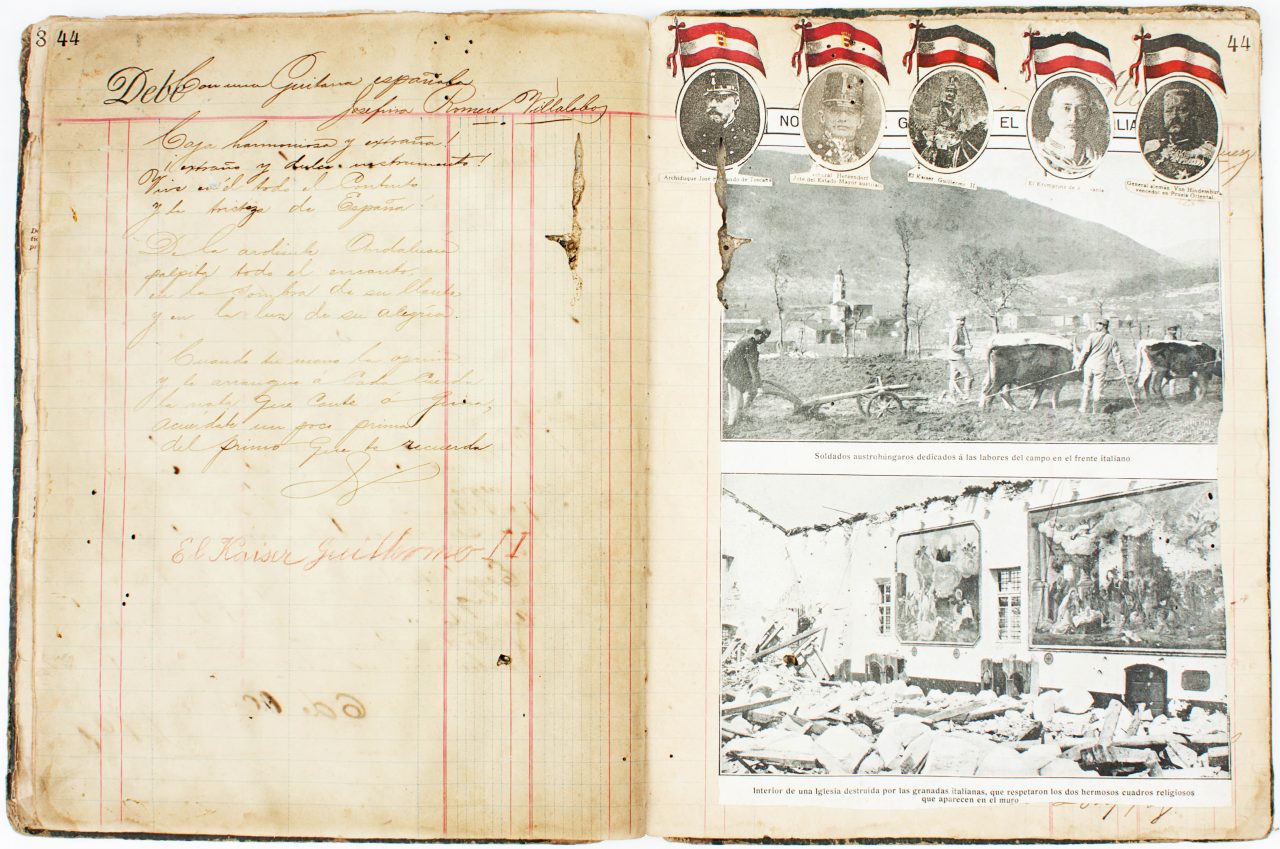 8 44
Debe
Con una Guitarra española
Josefina Romero Villalobos
Caja harmoniosa y extraña!
¡¡ extraño y dulce instrumento!
Vive en él todo el Contento
y la tristeza de España.
De la ardiente Andalucía
palpita todo el encanto
en la sombra de su llanto
y en la luz de su alegría.
Cuando tu mano la oprima
y le arranque á Cada Cuerda
la nota, que Cante ó gima,
acuérdate un poco prima
del primo que te recuerda
El Kaiser Guillermo II
44
NO
G
EL
LIA
Archiduque José
de Toscana
General Hotzendorf
Jefe del Estado Mayor austriaco
El Kaiser Guillermo II
El Kronprinz de
General alemán Von Hindemburg
vencedor en Prusia Oriental
Soldados austrohúngaros dedicados á las labores del campo en el frente italiano
Interior de una Iglesia destruída por las granadas italianas, que respetaron los dos hermosos cuadros religiosos
que aparecen en el muro